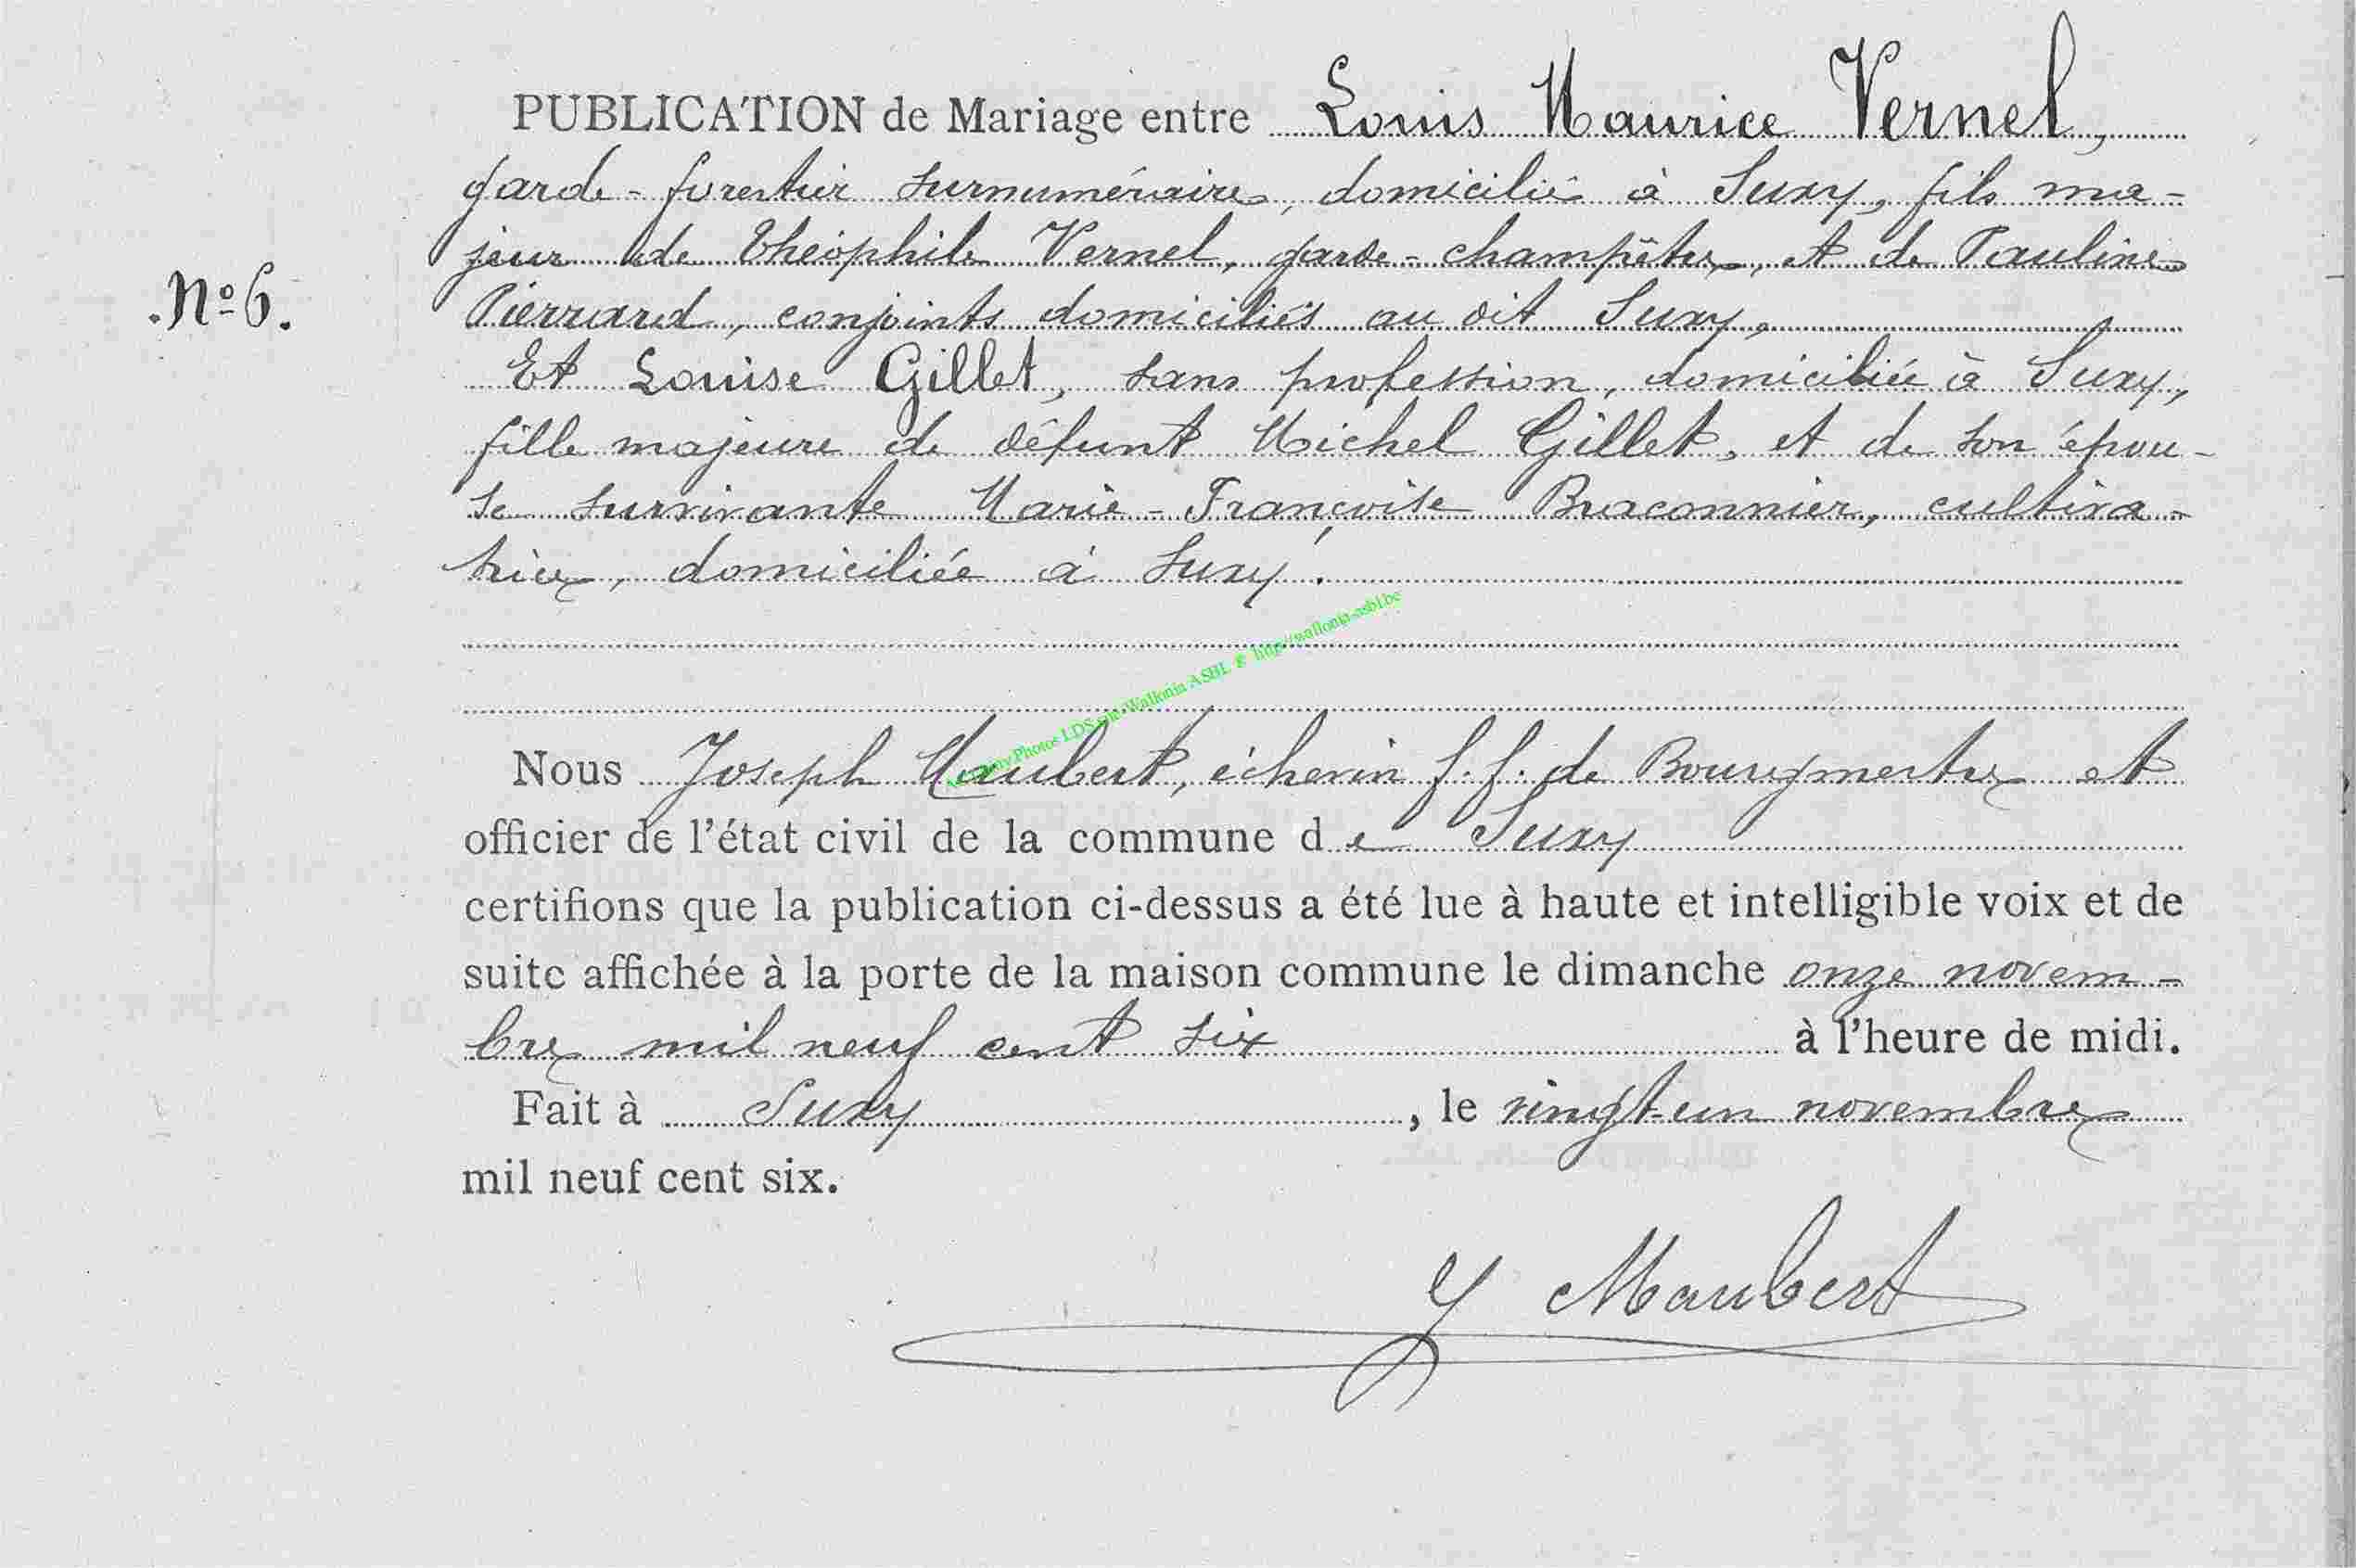 PUBLICATION de Mariage entre Louis Maurice Vernel,
garde-forestier surnuméraire, domicilié à Suxy, fils ma-
jeur de Théophile Vernel, garde-champêtre, et de Pauline
N° 6.
Pierrard, conjoints domiciliés au dit Suxy,
Et Louise Gillet, sans profession, domiciliée à Suxy,
fille majeure de défunt Michel Gillet, et de son épou-
se survivante Marie-Françoise Braconnier, cultiva-
trice, domiciliée à Suxy.
Photos LDS Wallonia ASBL © http://wallonia-asbl.be
Nous Joseph Maubert, échevin f.f. de Bourgmestre et
officier de l'état civil de la commune de Suxy
certifions que la publication ci-dessus a été lue à haute et intelligible voix et de
suite affichée à la porte de la maison commune le dimanche onze novem-
bre mil neuf cent six à l'heure de midi.
Fait à Suxy, le vingt-un novembre
mil neuf cent six.
J Maubert